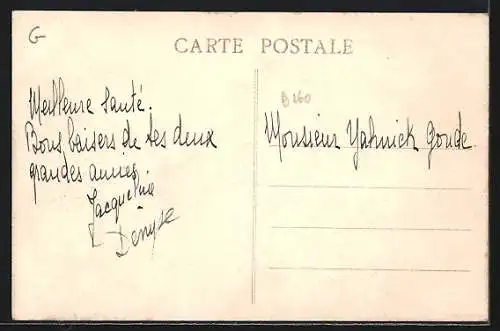 G
CARTE POSTALE
B260
Meilleure Santé.
Bons baisers de tes deux
grandes amies
Jacqueline
Denyse
Monsieur Yannick Gonde.